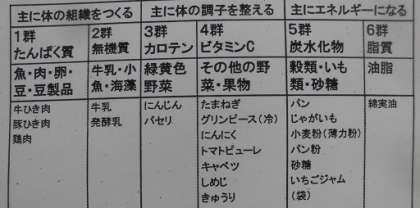 主に体の組織をつくる 主に体の調子を整える 主にエネルギーになる
1群 2群 3群 4群 5群 6群
たんぱく質 無機質 カロテン ビタミンC 炭水化物 脂質
魚・肉・卵・ 牛乳・小 緑黄色 その他の野 穀類・いも 油脂
豆・豆製品 魚・海藻 野菜 菜・果物 類・砂糖
牛ひき肉 牛乳 にんじん たまねぎ パン 綿実油
豚ひき肉 発酵乳 パセリ グリンピース(冷) じゃがいも
鶏肉 にんにく 小麦粉(薄力粉)
トマトピューレ パン粉
キャベツ 砂糖
しめじ いちごジャム
きゅうり (袋)